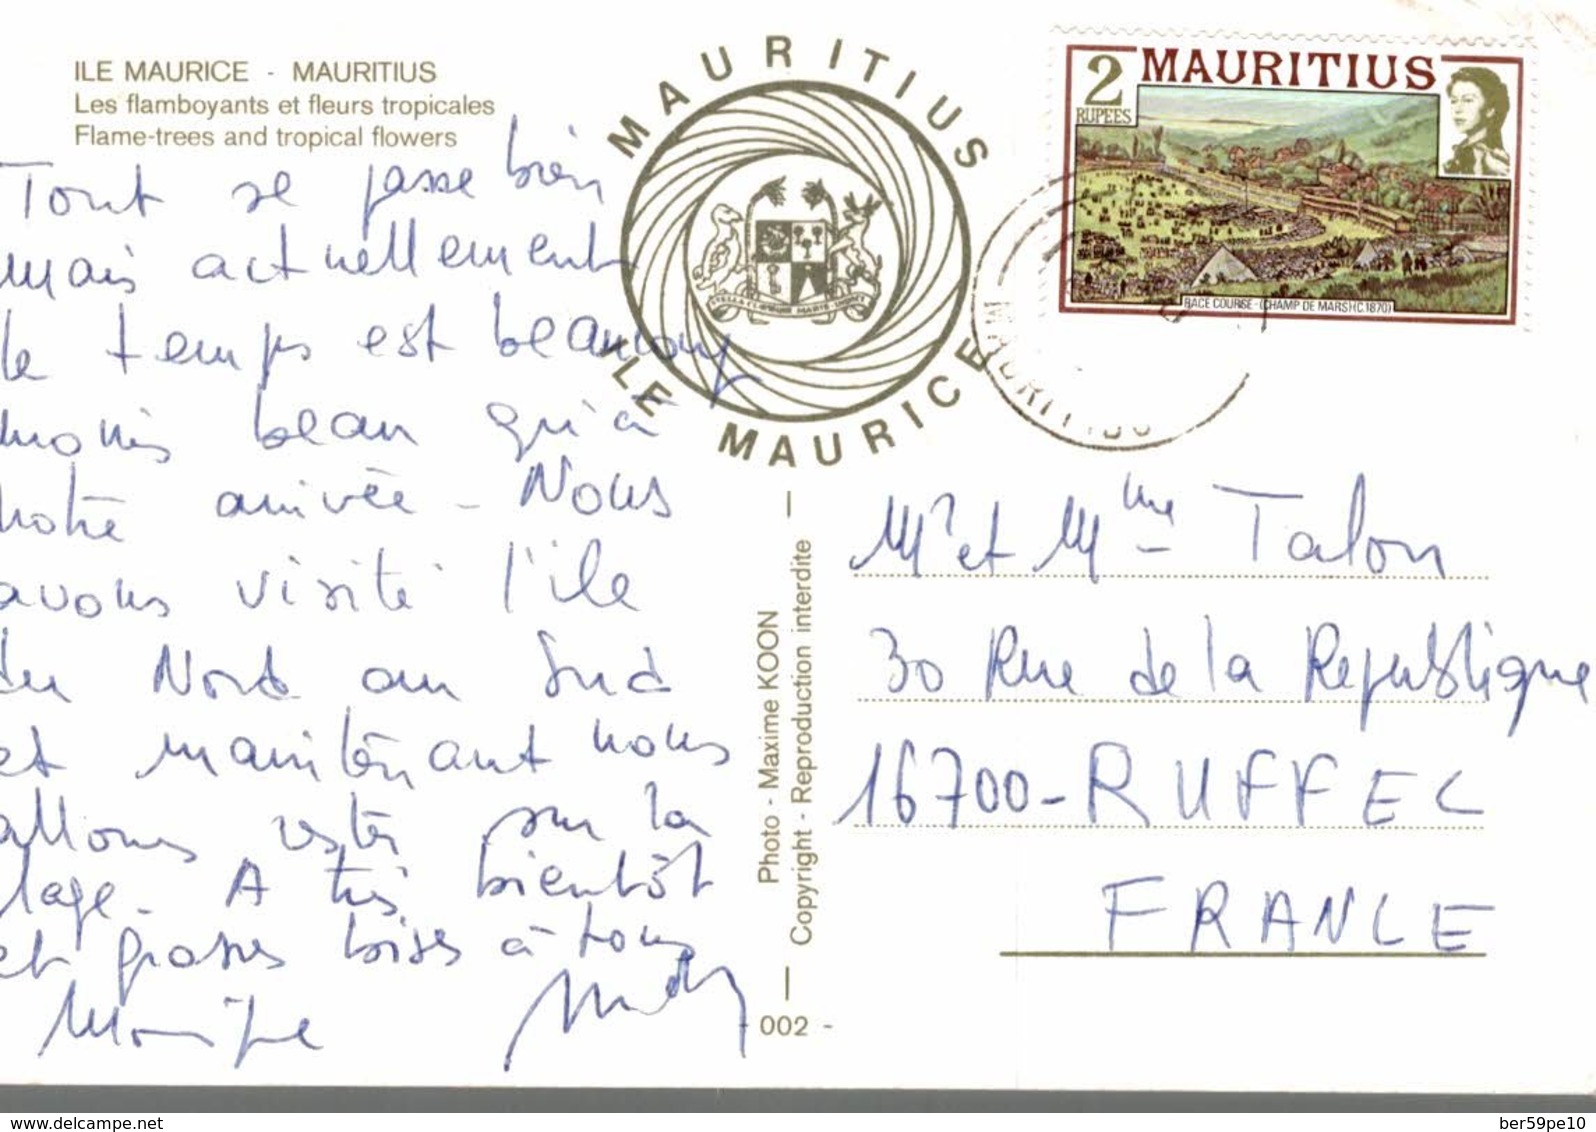 ILE MAURICE - MAURITIUS
Les flamboyants et fleurs tropicales
Flame-trees and tropical flowers
Tout se passe bien
mais actuellement
le temps est beaucoup
moins beau qu'à
notre arrivée - Nous
avons visité l'ile
du Nord au Sud
et maintenant nous
allons rester sur la
plage - A très bientôt
et grosses bises à tous
MAURITIUS
ILE MAURICE
2
RUPEES
MAURITIUS
RACE COURSE-(CHAMP DE MARS)(C.1870)
MAURITIUS
Photo - Maxime KOON
Copyright - Reproduction interdite
002 -
Mr et Mme Talon
30 Rue de la Republique
16700 - RUFFEC
FRANCE
delcampe.net
ber59pe10